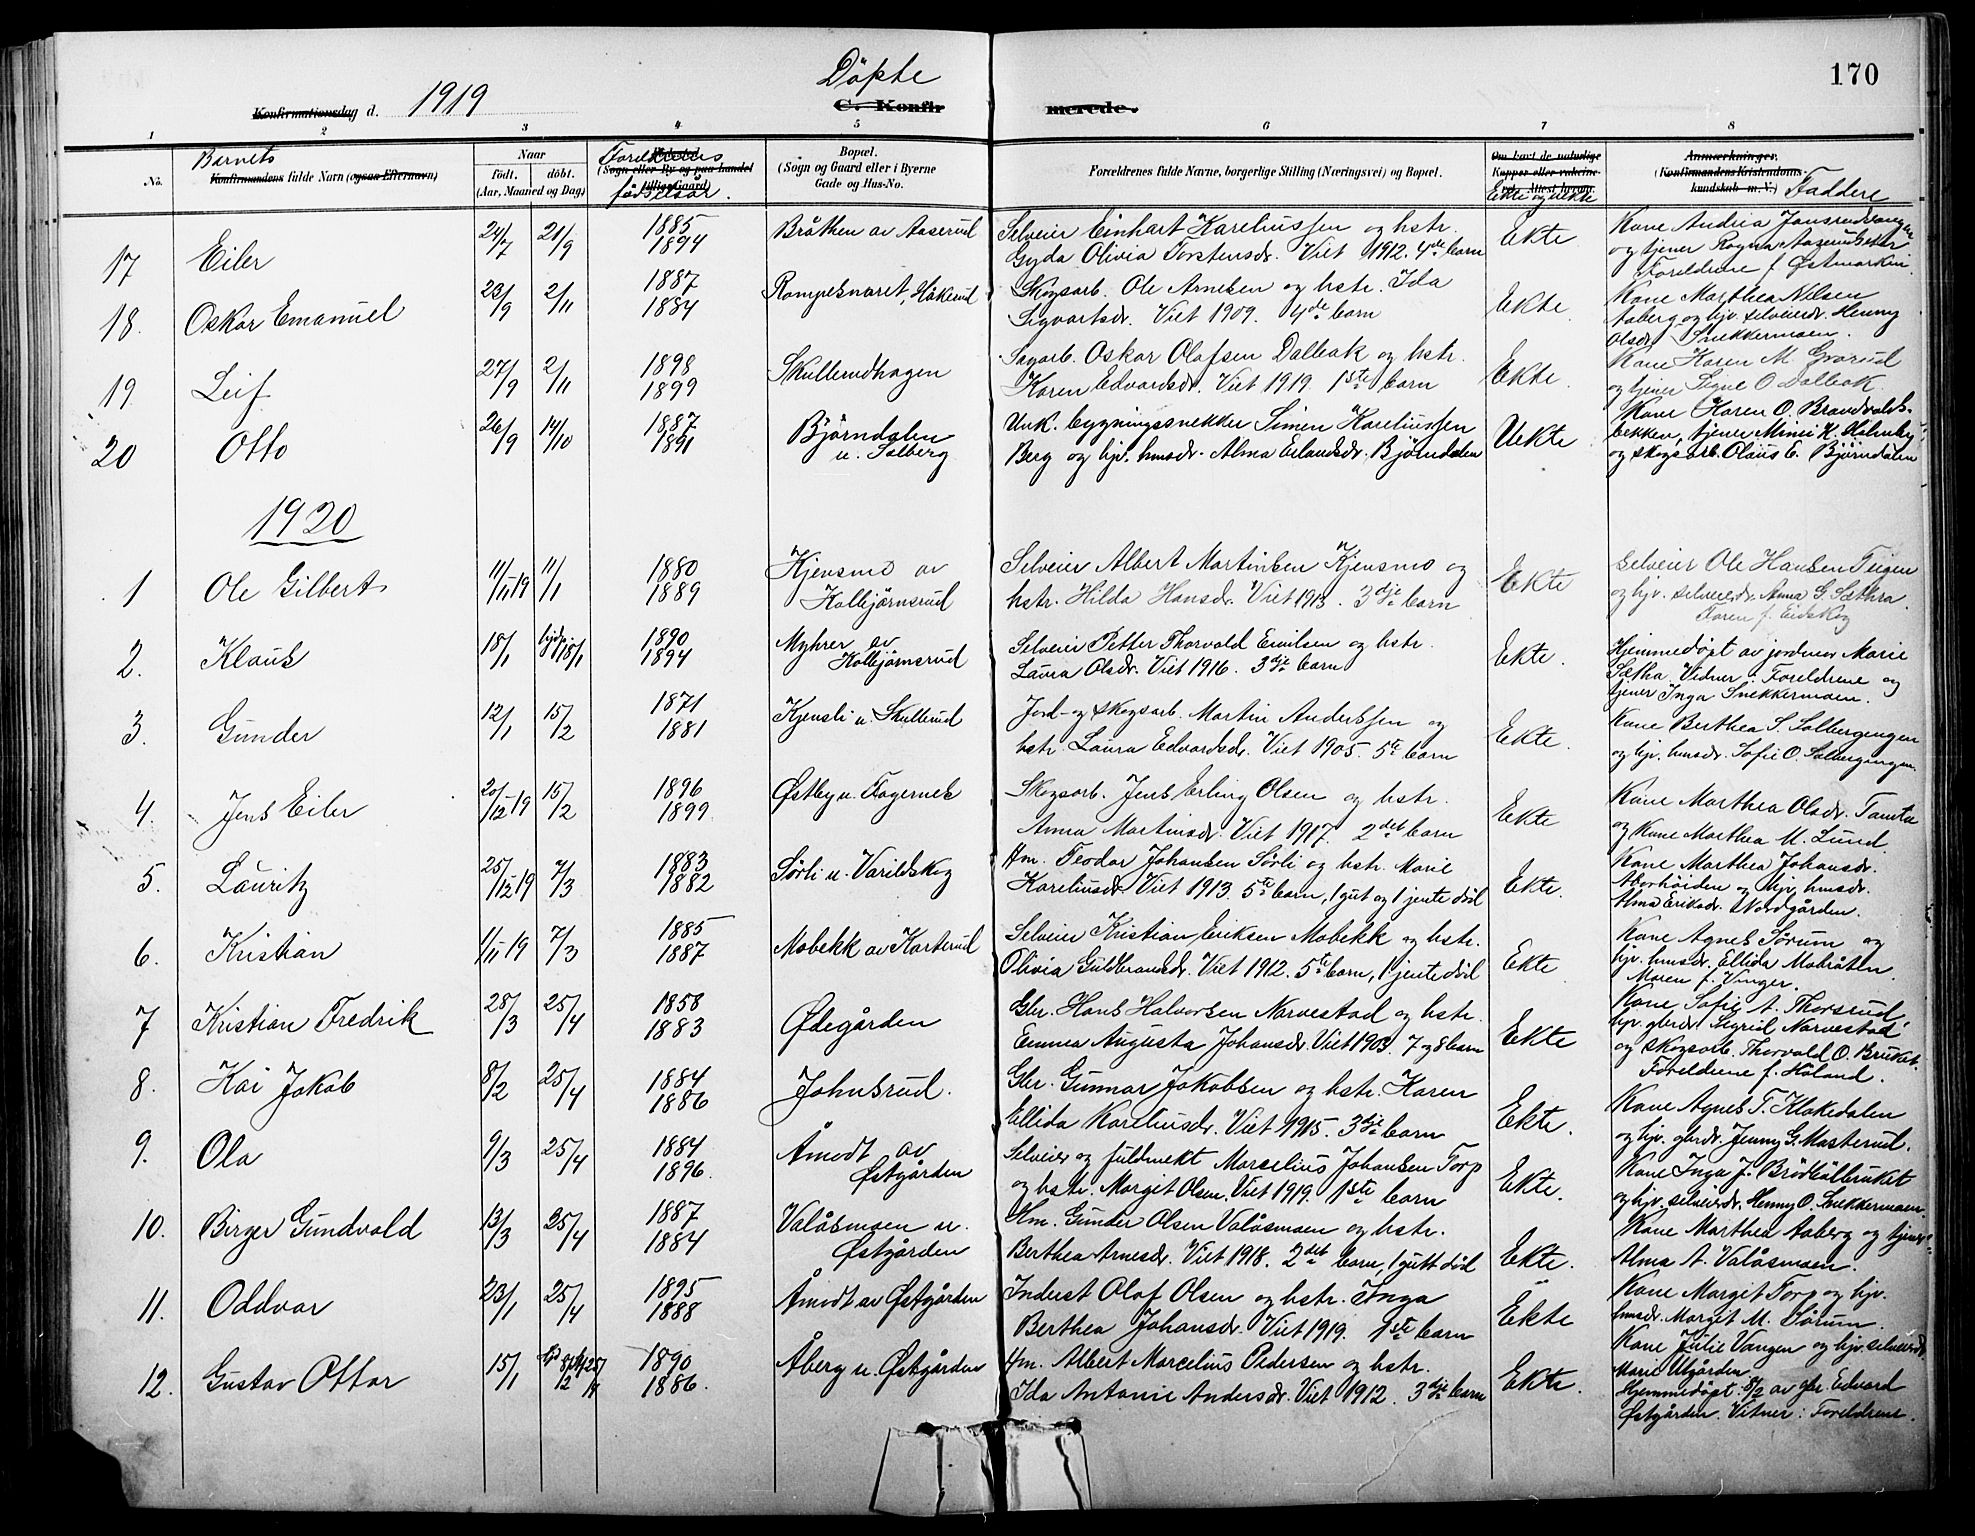 170
Döpte
Konfirmationsdag d. 1919
C. Konfir merede.
1 2 3 4 5 6 7 8
No.
Barnets
Konfirmandens fulde Navn (ogsaa Efternavn)
Naar
födt. döbt.
(Aar, Maaned og Dag)
Foreldrenes
(Sogn eller By og paa Landet
tillige Gaard)
födselsår
Bopæl.
(Sogn og Gaard eller i Byerne
Gade og Hus-No.
Forældrenes fulde Navne, borgerlige Stilling (Næringsvei) og Bopæl.
Om havt de naturlige
Kopper eller vaccine-
ret. Attest herom.
Ekte og uekte
Anmærkninger.
(Konfirmandens Kristendoms-
kundskab m. V.) Faddere
17 Eiler 24/7 21/9 1885 1894 Bråthen av Aaserud
Selveier Einhart Kareliussen og hstr.
Gyda Olivia Torstensdr. Viet 1912. 4de barn
Ekte
Kone Andria Jansrudvangen
og tjener Ragna Aaserudseter
Foreldrene f. Östmarken
18. Oskar Emanuel 23/9 2/11 1887 1884 Rompesnaret, Håkerud
Skogsarb. Ole Arnesen og hstr. Ida
Sigvartsdr. Viet 1909. 4de barn
Ekte.
Kone Marthea Nilsen
Aaberg og hjv. selveierdr. Henny
Olsdr. Snekkermoen.
19. Leif 27/9 2/11 1898 1899 Skullerudhagen
Sagarb. Oskar Olafsen Dalbak og hstr.
Karen Edvardsdr. Viet 1919. 1ste barn
Ekte.
Kone Karen M. Grarud
og tjener Signe O Dalbak.
20 Otto 26/9 14/10 1887 1891 Björndalen
u. Solberg
Unk. bygningssnekker Simen Kareliussen
Berg og hjv. hmsdr. Alma Erlandsdr. Björndalen
Uekte
Kone Karen O. Brandvolds-
bekken, tjener Minni K. Holmby
og skogsarb. Olaus E. Björndalen
1920
1 Ole Gilbert 11/11 19 11/1 1880 1889 Kjensmo av
Kolbjörnsrud
Selveier Albert Martinsen Kjensmo og
hstr. Hilda Hansdr. Viet 1913. 3dje barn
Ekte
Selveier Ole Hansen Teigen
og hjv. selveierdr. Anna G. Sæthra.
Faren f. Eidskog
2. Klaus 18/1 18/1 1890 1894 Myhrer av
Kolbjörnsrud
Selveier Petter Thorvald Emilsen og hstr.
Laura Olsdr. Viet 1916. 3dje barn
Ekte.
Hjemmedöpt av jordmor Marie
Sætha. Vidner: Foreldrene og
tjener Inga Snekkermoen.
3. Gunder 12/1 15/2 1871 1881 Kjensli u. Skullerud
Jord- og skogsarb. Martin Anderssen og
hstr. Laura Edvardsdr. Viet 1905. 5te barn
Ekte.
Kone Berthea S. Solbergengen
og hjv. hmsdr. Sofie O. Solbergengen.
4. Jens Eiler 20/12 19 15/2 1896 1899 Østby u. Fagernes
Skogsarb. Jens Erling Olsen og hstr.
Anna Martinsdr. Viet 1917. 2det barn
Ekte
Kone Marthea Olsdr. Tomta
og Kone Marthea M. Lund.
5. Lauritz 25/12 19 7/3 1883 1882 Sörli u. Varildskog
Hm. Teodor Johansen Sörli og hstr. Marie
Kareliusdr. Viet 1913. 5te barn, 1 gut og 1 jente död
Ekte.
Kone Marthea Johansdr.
Aborhöiden og hjv. hmsdr.
Alma Eriksdr. Nordgården.
6. Kristian 1/11 19 7/3 1885 1887 Mobekk av Korterud
Selveier Kristian Eriksen Mobekk og hstr.
Olivia Guldbrandsdr. Viet 1912. 5te barn, 1 jente död
Ekte
Kone Agnes Sørum og
hjv. hmsdr. Ellida Mobråten.
Moren f. Vinger.
7 Kristian Fredrik 28/3 25/4 1858 1883 Ødegården
Gbr. Hans Halvorsen Narvestad og hstr.
Emma Augusta Johansdr. Viet 1903. 7 og 8 barn
Ekte
Kone Sofie A. Thorsrud,
hjv. gbrdr. Sigrid Narvestad
og skogsarb. Thorvald O. Bruket.
Foreldrene f. Höland.
8. Kai Jakob 8/2 25/4 1884 1886 Johnsrud.
Gbr. Gunnar Jakobsen og hstr. Karen
Ellida Kareliusdr. Viet 1915. 3dje barn
Ekte.
Kone Agnes T. Klokedalen
og hjv. gbrdr. Jenny G. Masterud.
9. Ola 9/3 25/4 1884 1896. Åmodt av
Østgården
Selveier og fuldmekt Marselius Johansen Torp
og hstr. Margit Olsen. Viet 1919. 1ste barn
Ekte.
Kone Inga J. Brödbölbruket
og hjv. selveierdr. Henny O. Snekkermoen.
10. Birger Gundvald 13/3 25/4 1887 1884 Valåsmoen u.
Østgården
Hm. Gunder Olsen Valåsmoen og hstr.
Berthea Arnesdr. Viet 1918. 2det barn, 1 gutt död
Ekte.
Kone Marthea Aaberg og tjener
Alma A. Valåsmoen.
11. Oddvar 23/1 25/4 1895 1888 Åmodt av Østgården
Inderst Olaf Olsen og hstr. Inga
Berthea Johansdr. Viet 1919. 1ste barn
Ekte
Kone Margit Torp og hjv.
hmsdr. Margit M. Sörum.
12. Gustav Ottar 15/1 8/2 25/4 1890 1886. Åberg u. Østgården
Hm. Albert Marcelius Pedersen og hstr.
Ida Antonie Andersdr. Viet 1912. 3dje barn
Ekte.
Kone Julie Vangen og hjv. selveierdr.
Marie Utgården.
Hjemmedöpt 8/2 av gbr. Edvard
Østgården. Vitner: Foreldrene.